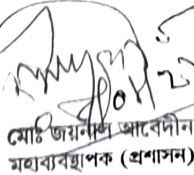 মোঃ জয়নাল আবেদীন
মহাব্যবস্থাপক (প্রশাসন)